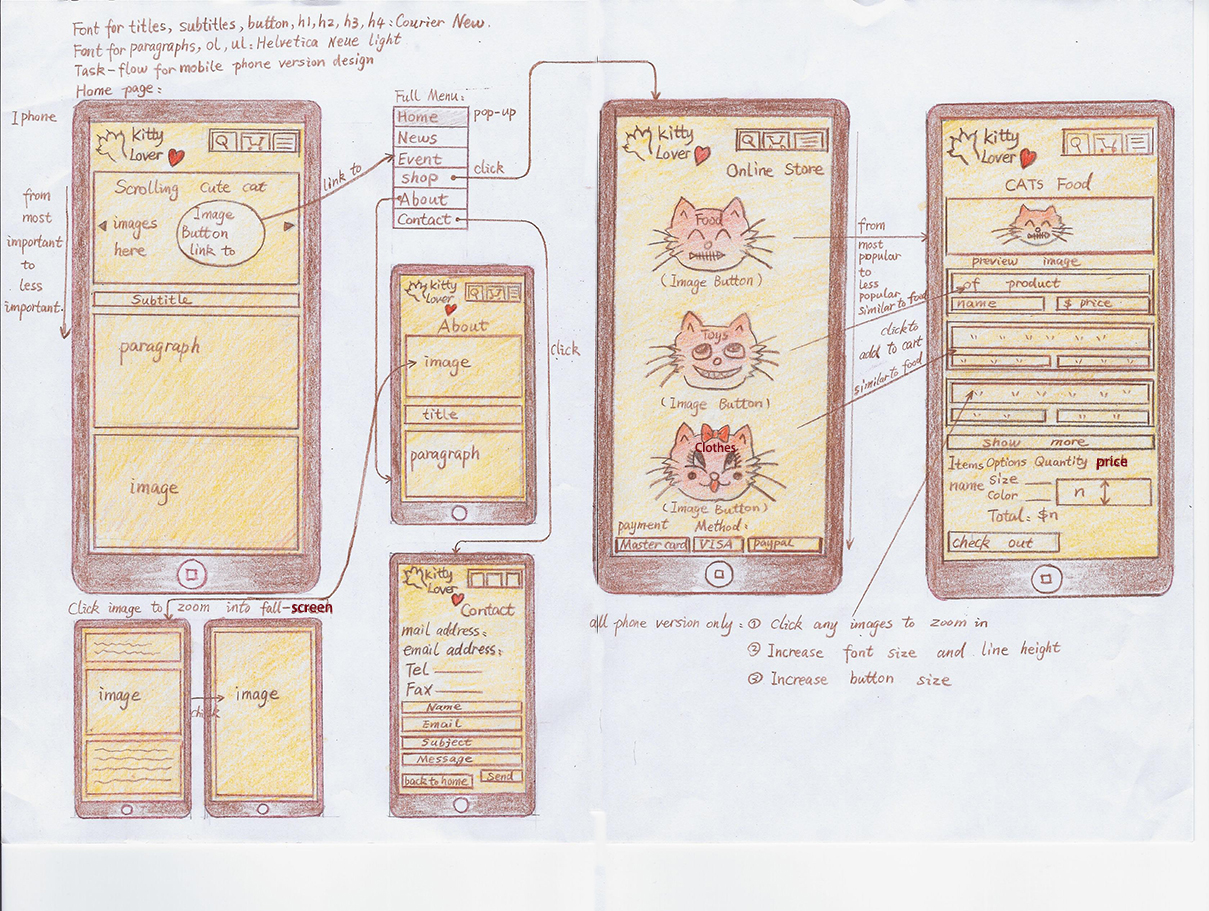 Font for titles, subtitles, button, h1, h2, h3, h4: Courier New.
Font for paragraphs, ol, ul: Helvetica Neue light
Task-flow for mobile phone version design
Home page:
Iphone
from
most
important
to
less
important.
Kitty
Lover
Scrolling cute cat
images
here
Image
Button
link to
Subtitle
paragraph
image
link to
Full Menu:
pop-up
Home
News
Event
Shop
About
Contact
click
click
Kitty
Lover
About
image
title
paragraph
Click image to zoom into fall-screen
image
click
image
Kitty
Lover
Contact
mail address:
email address:
Tel
Fax
Name
Email
Subject
Message
back to home
Send
Kitty
Lover
Online Store
Food
(Image Button)
Toys
(Image Button)
Clothes
(Image Button)
payment Method:
Master card
VISA
paypal
from
most
popular
to
less
popular
similar to food
click to
add to cart
similar to food
Kitty
Lover
CATs Food
preview image
of product
name
$ price
show more
Items Options Quantity price
name size
color
n
Total: $n
check out
all phone version only: ① Click any images to zoom in
② Increase font size and line height
③ Increase button size